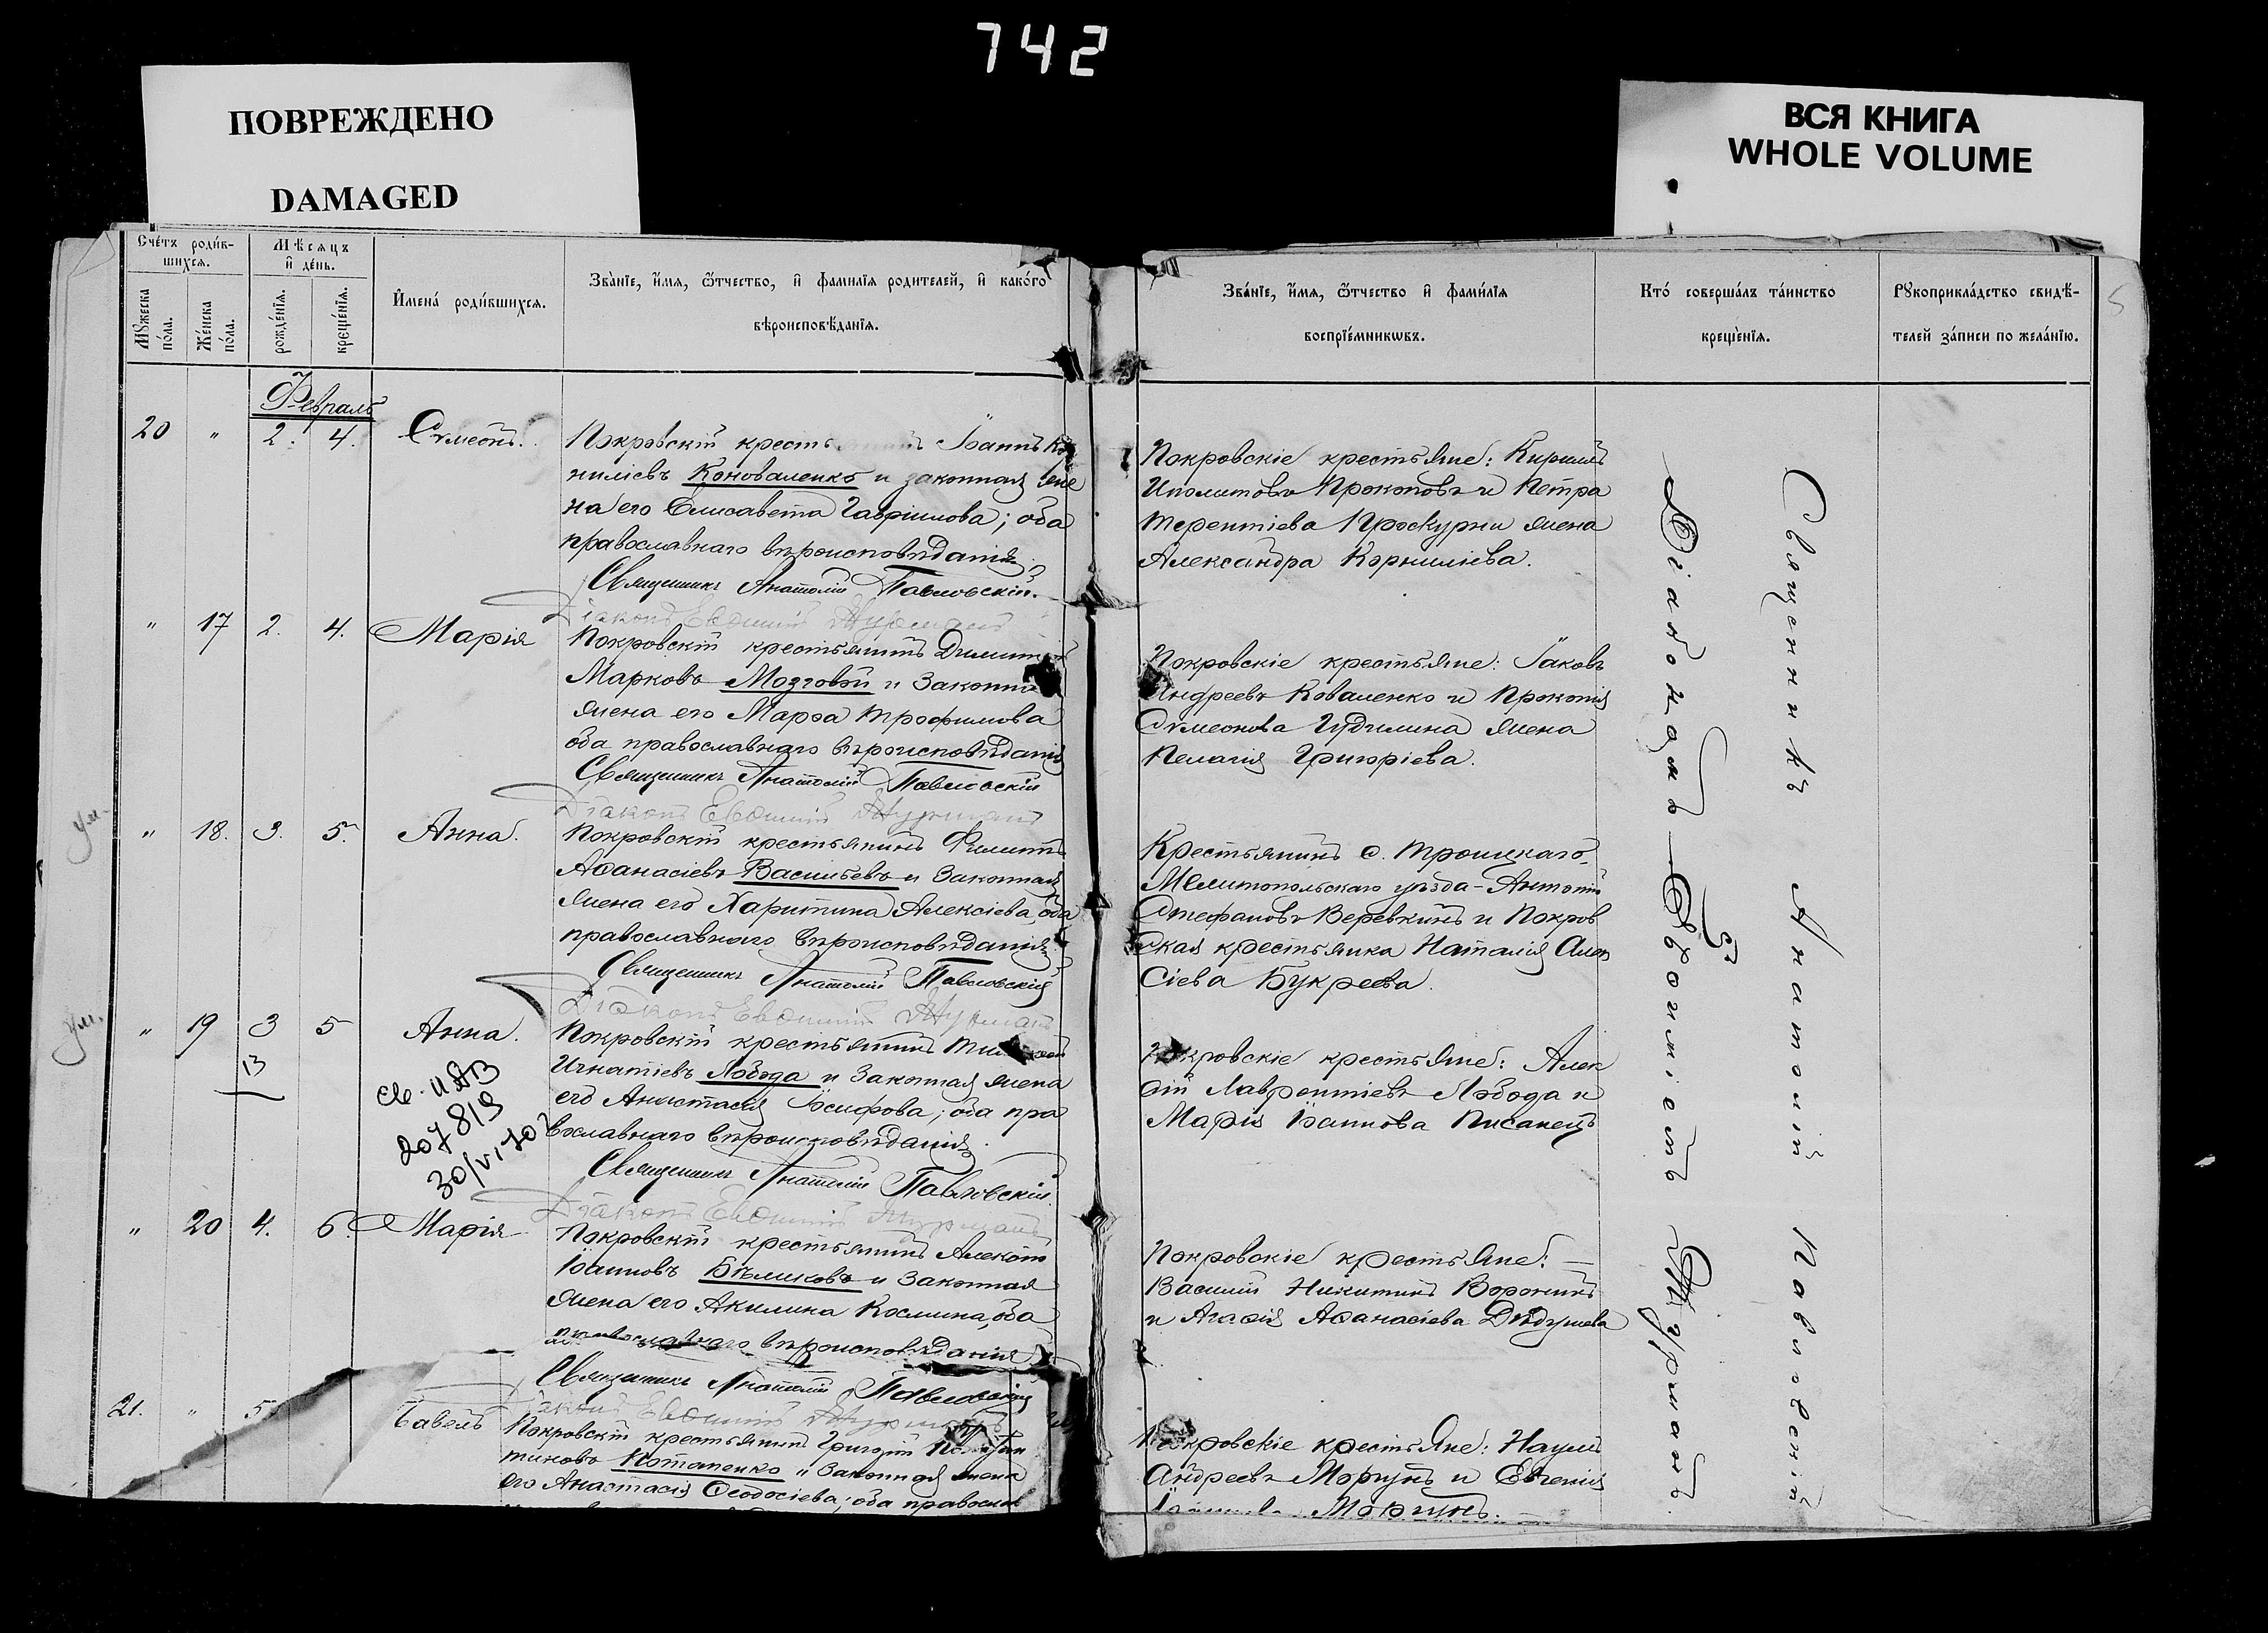 742
ПОВРЕЖДЕНО
DAMAGED
ВСЯ КНИГА
WHOLE VOLUME
Счетъ родив-
шихся.
Мѣсяцъ
и день.
Мужеска
пола.
Женска
пола.
рожденія.
крещенія.
Имена родившихся.
Званіе, имя, отчество, и фамилія родителей, и какого
вѣроисповѣданія.
Званіе, имя, отчество и фамилія
воспріемниковъ.
Кто совершалъ таинство
крещенія.
Рукоприкладство свидѣ-
телей записи по желанію.
5
Февраль
20 " 2. 4. Сѵмеонъ.
Покровскій Іоаннъ Кор
нилiевъ Коноваленко и законная же
на его Елисавета Гавріилова; оба
православнаго вѣроисповѣданія.
Священникъ Анатолій Павловскій.
Діаконъ Евѳимій Журманъ
Покровскіе крестьяне: Кириллъ
Иполитовъ Прокоповъ и Петра
Терентіева Проскурни жена
Александра Корниліева.
" 17 2. 4. Марія
Покровскій крестьянинъ Димитрій
Марковъ Мозговой и законная
жена его Марѳа Трофимова
оба православнаго вѣроисповѣданія
Священникъ Анатолій Павловскій
Діаконъ Евѳимій Журманъ
Покровскіе крестьяне: Іаковъ
Андреевъ Коваленко и Прокопія
Сѵмеонова Гудилина жена
Пелагія Григоріева.
ум.
" 18. 3. 5. Анна.
Покровскій крестьянинъ Филиппъ
Аѳанасіевъ Васильевъ и законная
жена его Харитина Алексіева, оба
православнаго вѣроисповѣданія.
Священникъ Анатолій Павловскій
Діаконъ Евѳимій Журманъ
Крестьянинъ с. Троицкаго,
Мелитопольскаго уѣзда - Антоній
Стефановъ Веревкинъ и Покров
ская крестьянка Наталія Алек
сіева Букреева.
ум.
" 19 3 5 Анна.
13
св. IIЯВ
207819
30/VI 70
Покровскій крестьянинъ
Игнатіевъ Лобода и законная жена
его Анастасія Іосифова; оба пра
вославнаго вѣроисповѣданія.
Священникъ Анатолій Павловскій.
Діаконъ Евѳимій Журманъ
Покровскіе крестьяне: Алек
сій Лаврентіевъ Лобода и
Марія Іоаннова Писанецъ
" 20 4. 6. Марія
Покровскій крестьянинъ Алексій
Іоанновъ Бѣликовъ и законная
жена его Акилина Космина, оба
православнаго вѣроисповѣданія
Священникъ Анатолій Павловскій
Діаконъ Евѳимій Журманъ
Покровскіе крестьяне: —
Василій Никитинъ Воронинъ
и Агаѳія Аѳанасіева Дѣдушева
21. " 5 Павелъ
Покровскій крестьянинъ Григорій Констан
тиновъ Потапенко и законная жена
его Анастасія Ѳеодосіева; оба православ
Покровскіе крестьяне: Наумъ
Андреевъ Моргунъ и Евгенія
Моргунъ.
Священникъ Анатолій Павловскій
Діакономъ Евѳиміемъ Журманъ.